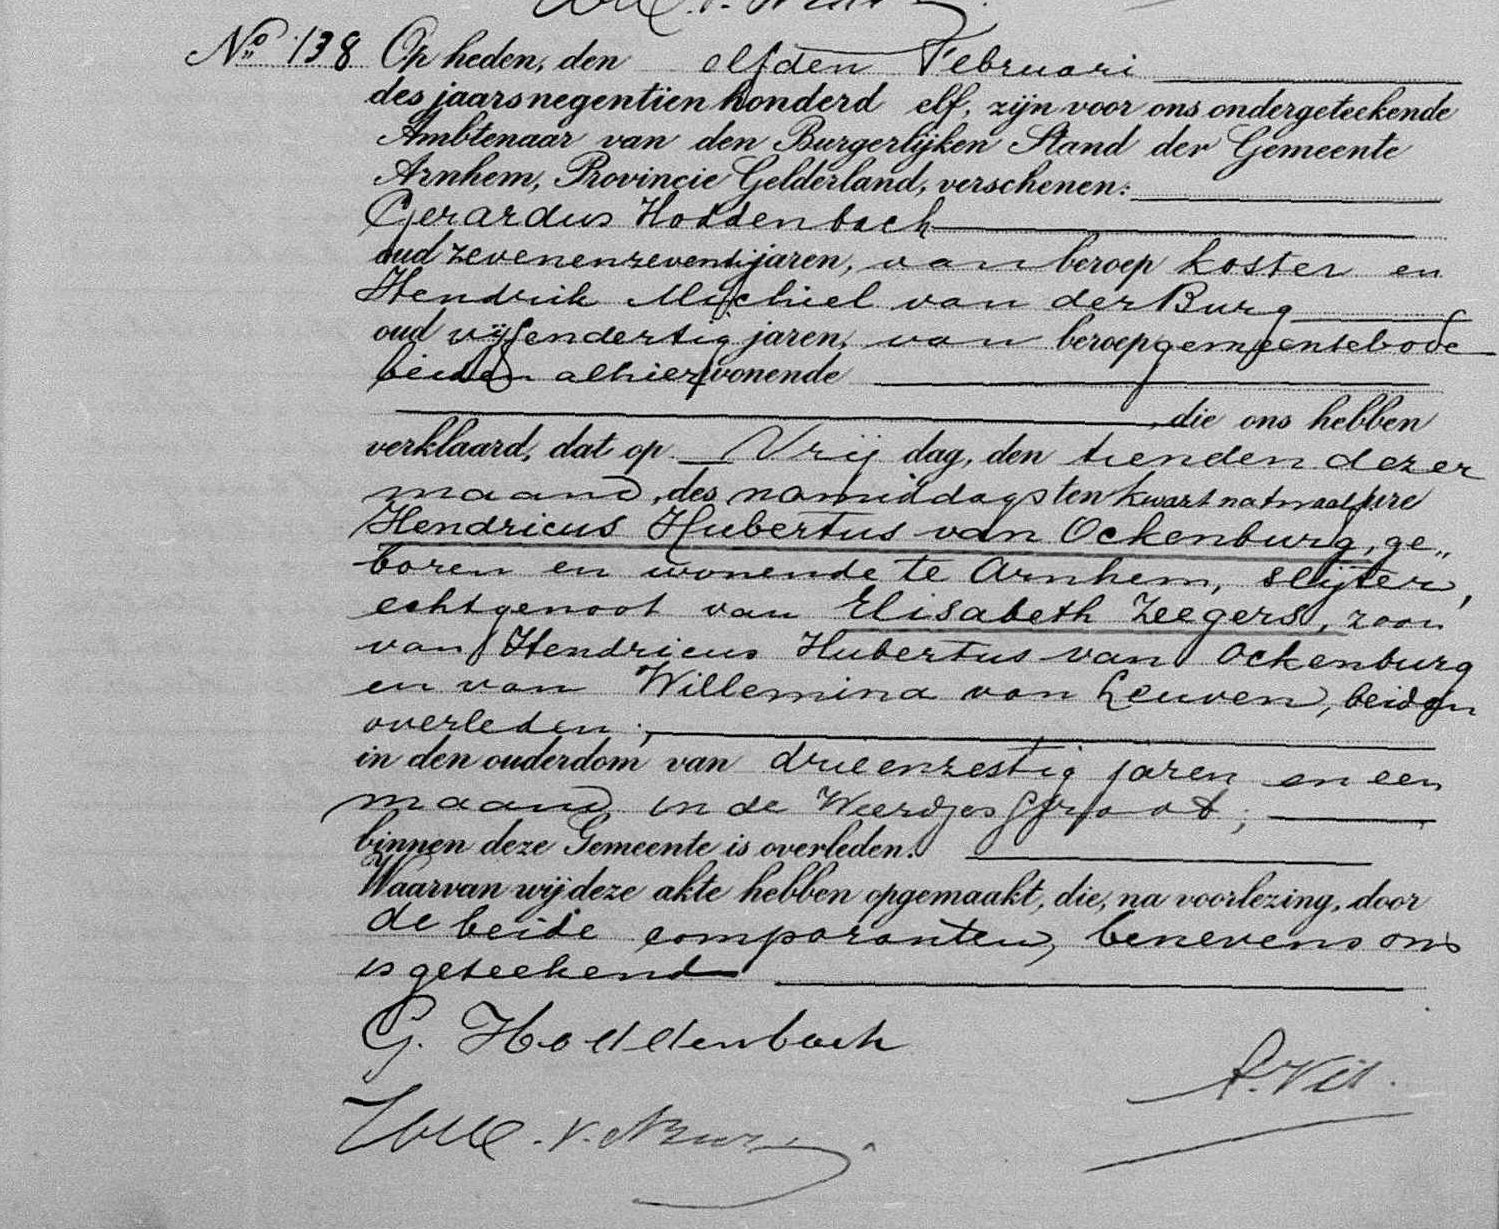 No. 138 Op heden, den elfden Februari
des jaars negentien honderd elf, zijn voor ons ondergeteekende
Ambtenaar van den Burgerlijken Stand der Gemeente
Arnhem, Provincie Gelderland, verschenen:
Gerardus Hoddenbach
oud zevenenzeventig jaren, van beroep koster en
Hendrik Michiel van der Burg
oud vijfendertig jaren, van beroep gemeentebode
beiden alhier wonende
, die ons hebben
verklaard, dat op Vrijdag, den tienden dezer
maand, des namiddags ten kwart na twaalf ure
Hendricus Hubertus van Ockenburg, ge„
boren en wonende te Arnhem, slijter,
echtgenoot van Elisabeth Zeegers, zoon
van Hendricus Hubertus van Ockenburg
en van Willemina van Leuven, beiden
overleden;
in den ouderdom van drieenzestig jaren en een
maand, in de Weerdjesstraat;
binnen deze Gemeente is overleden.
Waarvan wij deze akte hebben opgemaakt, die, na voorlezing, door
de beide comparanten, benevens ons
is geteekend
G. Hoddenbach
v. d. Burg